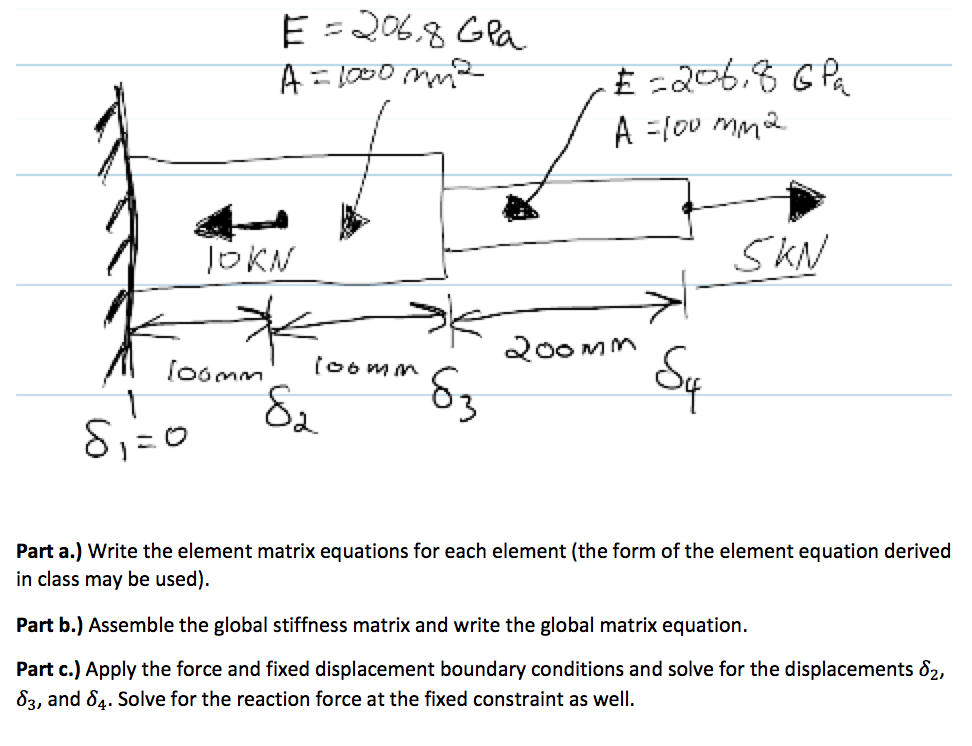 E = 206.8 GPa
A = 1000 mm²
E = 206.8 GPa
A = 100 mm²
10KN
5KN
100mm
100mm
200mm
δ₁=0
δ₂
δ₃
δ₄
Part a.) Write the element matrix equations for each element (the form of the element equation derived
in class may be used).
Part b.) Assemble the global stiffness matrix and write the global matrix equation.
Part c.) Apply the force and fixed displacement boundary conditions and solve for the displacements δ₂,
δ₃, and δ₄. Solve for the reaction force at the fixed constraint as well.